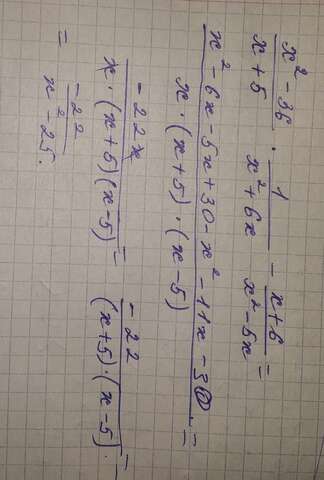 (x² - 36)/(x + 5) · 1/(x² + 6x) - (x + 6)/(x² - 5x) =
(x² - 6x - 5x + 30 - x² - 11x - 30)/(x · (x + 5) · (x - 5)) =
(-22x)/(x · (x + 5)(x - 5)) = (-22)/((x + 5) · (x - 5)) =
= (-22)/(x² - 25).